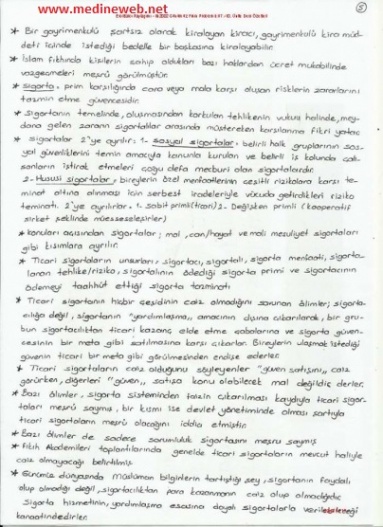 www.medineweb.net
5
* Bir gayrimenkulü şartsız olarak kiralayan kiracı, gayrimenkulü kira müd-
deti içinde istediği bedelle bir başkasına kiralayabilir.
* İslam fıkhında kişilerin sahip oldukları bazı haklardan ücret mukabilinde
vazgeçmeleri meşru görülmüştür.
* Sigorta, prim karşılığında cana veya mala karşı oluşan risklerin zararlarını
tazmin etme güvencesidir.
* Sigortanın temelinde, oluşmasından korkulan tehlikenin vukuu halinde, mey-
dana gelen zararın sigortalılar arasında müştereken karşılanma fikri yatar.
* Sigortalar 2'ye ayrılır: 1- Sosyal sigortalar, belirli halk gruplarının sos-
yal güvenliklerini temin amacıyla kanunla kurulan ve belirli iş kolunda çalı-
şanların iştirak etmeleri çoğu defa mecburi olan sigortalardır.
2- Hususi sigortalar, bireylerin özel menfaatlerinin çeşitli rizikolara karşı te-
minat altına alınması için serbest iradeleriyle vücuda getirdikleri riziko
teminatı. 2'ye ayrılırlar. 1. Sabit primli (ticari) 2. Değişken primli (kooperatif
şirket şeklinde müesseseleşirler)
* Konuları açısından sigortalar; mal, can/hayat ve mali mesuliyet sigortaları
gibi kısımlara ayrılır.
* Ticari sigortaların unsurları, sigortacı, sigortalı, sigorta menfaati, sigorta-
lanan tehlike/riziko, sigortalının ödediği sigorta primi ve sigortacının
ödemeyi taahhüt ettiği sigorta tazminatı
* Ticari sigortanın hiçbir çeşidinin caiz olmadığını savunan âlimler; sigorta-
cılığa değil, sigortanın "yardımlaşma,, amacının dışına çıkarılarak, bir gru-
bun sigortacılıktan ticari kazanç elde etme çabalarına ve sigorta güven-
cesinin bir meta gibi satılmasına karşı çıkarlar. Bireylerin ulaşmak istediği
güvenin ticari bir meta gibi görülmesinden endişe ederler.
* Ticari sigortaların caiz olduğunu söyleyenler "güven satışını,, caiz
görürken, diğerleri "güven,, satışa konu olabilecek mal değildir, derler.
* Bazı âlimler, sigorta sisteminden faizin çıkarılması kaydıyla ticari sigor-
taları meşru saymış, bir kısmı ise devlet yönetiminde olması şartıyla
ticari sigortaların meşru olacağını iddia etmiştir.
* Bazı âlimler de sadece sorumluluk sigortasını meşru saymış
* Fıkıh Akademileri toplantılarında genelde ticari sigortaların mevcut haliyle
caiz olmayacağı belirtilmiş.
* Günümüz dünyasında Müslüman bilginlerin tartıştığı şey, sigortanın faydalı
olup olmadığı değil, sigortacılıktan para kazanmanın caiz olup olmadığıdır.
Sigorta hizmetinin, yardımlaşma esasına dayalı sigortalarla verilebileceği
kanaatindedirler.